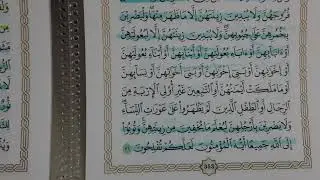 فُرُوجَهُنَّ وَلَا يُبْدِينَ زِينَتَهُنَّ إِلَّا مَا ظَهَرَ مِنْهَا وَلْيَضْرِبْنَ
بِخُمُرِهِنَّ عَلَىٰ جُيُوبِهِنَّ وَلَا يُبْدِينَ زِينَتَهُنَّ إِلَّا لِبُعُولَتِهِنَّ
أَوْ ءَابَآئِهِنَّ أَوْ ءَابَآءِ بُعُولَتِهِنَّ أَوْ أَبْنَآئِهِنَّ أَوْ أَبْنَآءِ بُعُولَتِهِنَّ
أَوْ إِخْوَٰنِهِنَّ أَوْ بَنِىٓ إِخْوَٰنِهِنَّ أَوْ بَنِىٓ أَخَوَٰتِهِنَّ أَوْ نِسَآئِهِنَّ
أَوْ مَا مَلَكَتْ أَيْمَٰنُهُنَّ أَوِ ٱلتَّٰبِعِينَ غَيْرِ أُو۟لِى ٱلْإِرْبَةِ مِنَ
ٱلرِّجَالِ أَوِ ٱلطِّفْلِ ٱلَّذِينَ لَمْ يَظْهَرُوا۟ عَلَىٰ عَوْرَٰتِ ٱلنِّسَآءِ
وَلَا يَضْرِبْنَ بِأَرْجُلِهِنَّ لِيُعْلَمَ مَا يُخْفِينَ مِن زِينَتِهِنَّ وَتُوبُوٓا۟
إِلَى ٱللَّهِ جَمِيعًا أَيُّهَ ٱلْمُؤْمِنُونَ لَعَلَّكُمْ تُفْلِحُونَ ٣١